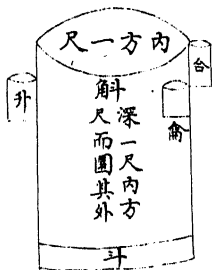 內方一尺
台
升
龠
斛
深一尺內方
尺而圜其外
斗